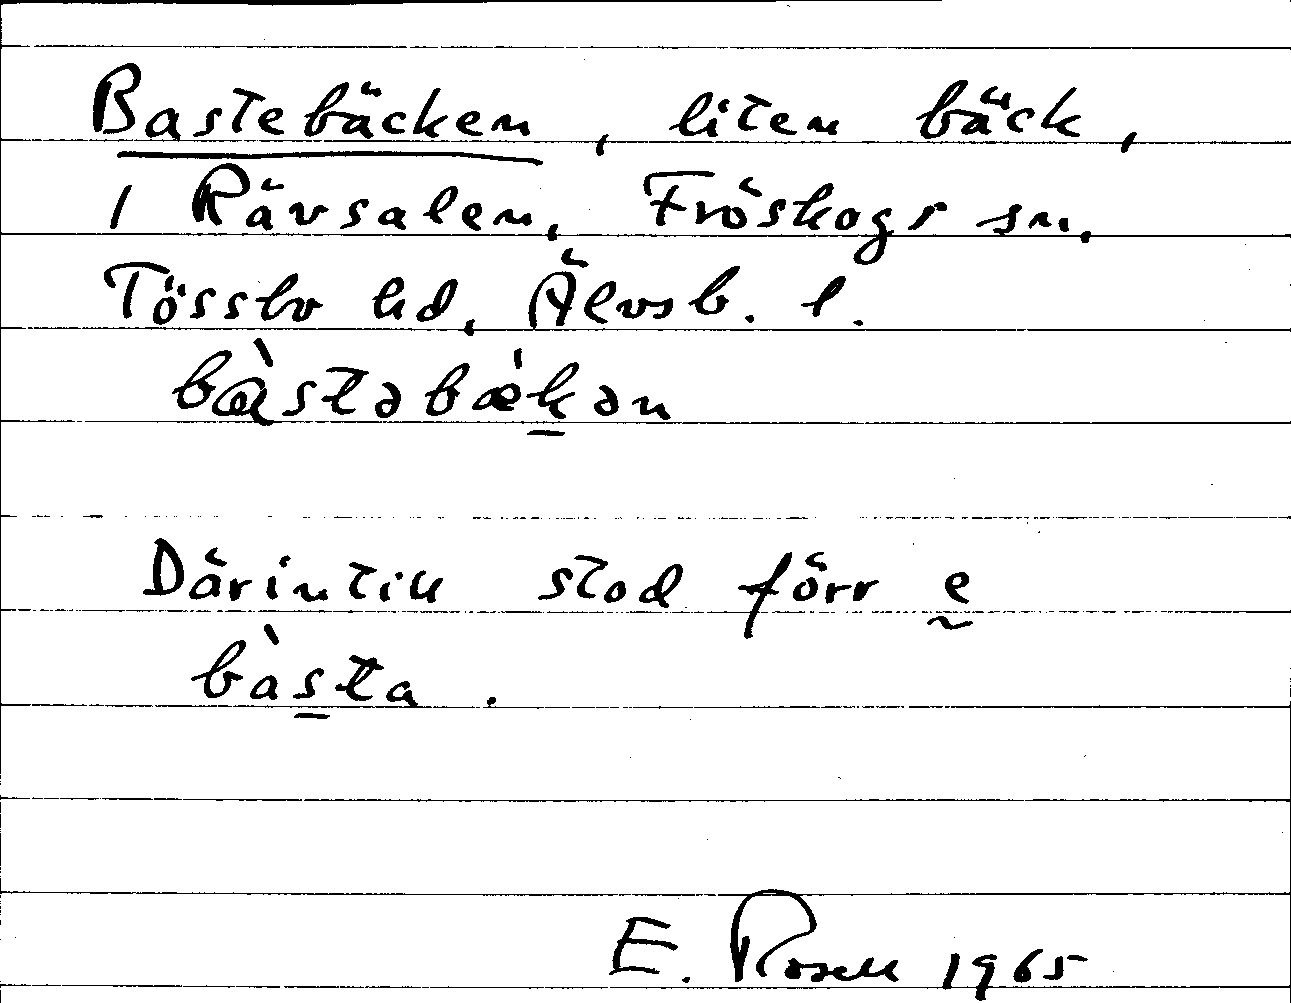 Bastebäcken, liten bäck,
i Rävsalen, Fröskogs sn.
Tössbo hd, Älvsb. l.
bàstəbækən
Därintill stod förr e
bàsta.
E. Rosell 1965